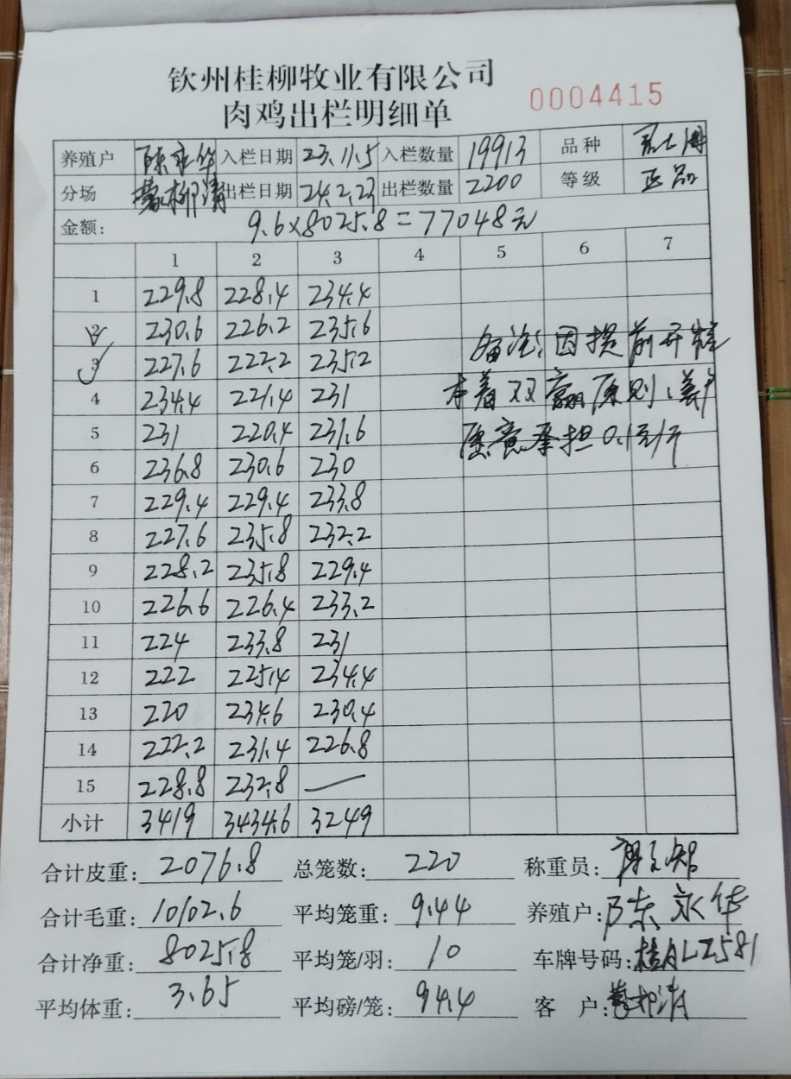 钦州桂柳牧业有限公司
肉鸡出栏明细单 0004415
养殖户 陈永华 入栏日期 23.11.5 入栏数量 19913 品种
分场 蒙柳清 出栏日期 24.2.23 出栏数量 2200 等级 正品
金额: 9.6×8025.8=77048元
1 2 3 4 5 6 7
1 229.8 228.4 234.4
2 230.6 226.2 235.6
3 227.6 222.2 235.2
备注:因提前开
4 234.4 221.4 231
本着双赢原则,养户
5 231 220.4 231.6
愿意承担0.1元/斤
6 236.8 230.6 230
7 229.4 229.4 233.8
8 227.6 235.8 232.2
9 228.2 235.8 229.4
10 226.6 226.4 233.2
11 224 233.8 231
12 222 225.4 234.4
13 220 234.6 230.4
14 222.2 231.4 226.8
15 228.8 232.8 —
小计 3419 3434.6 3249
合计皮重: 2076.8 总笼数: 220 称重员:
合计毛重: 10102.6 平均笼重: 9.44 养殖户: 陈永华
合计净重: 8025.8 平均笼/羽: 10 车牌号码: 桂ALZ581
平均体重: 3.65 平均磅/笼: 94.4 客户: 蒙柳清